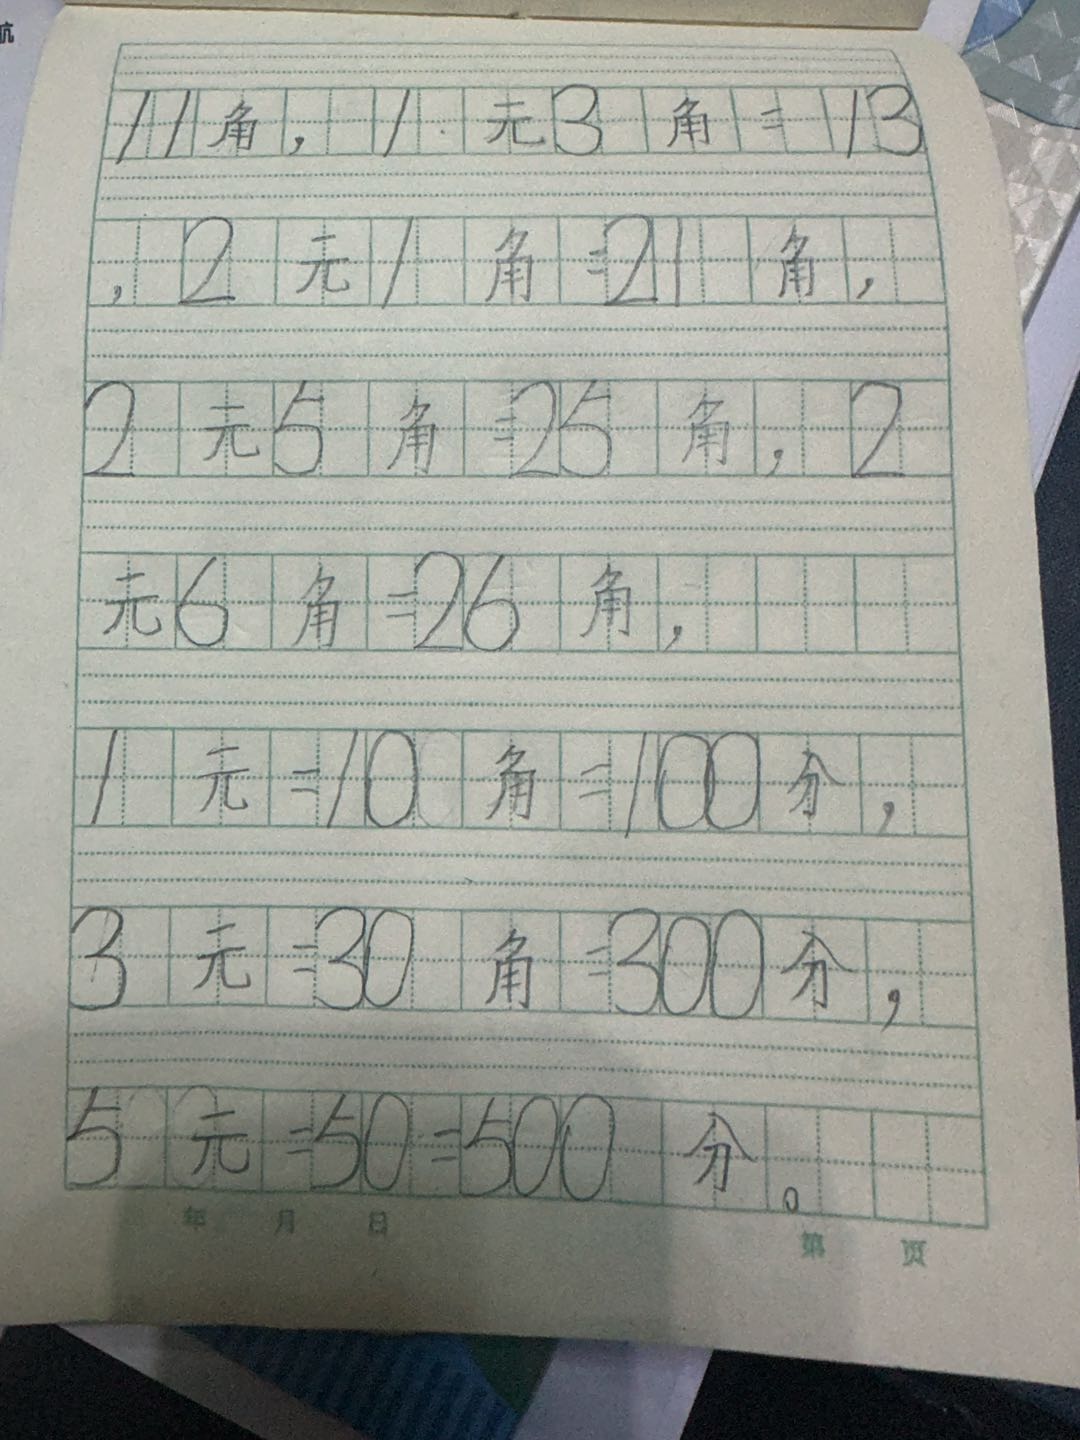 航
11角，1元3角=13
，2元1角=21角，
2元5角=25角，2
元6角=26角，
1元=10角=100分，
3元=30角=300分，
5元=50=500分。
年 月 日
第 页